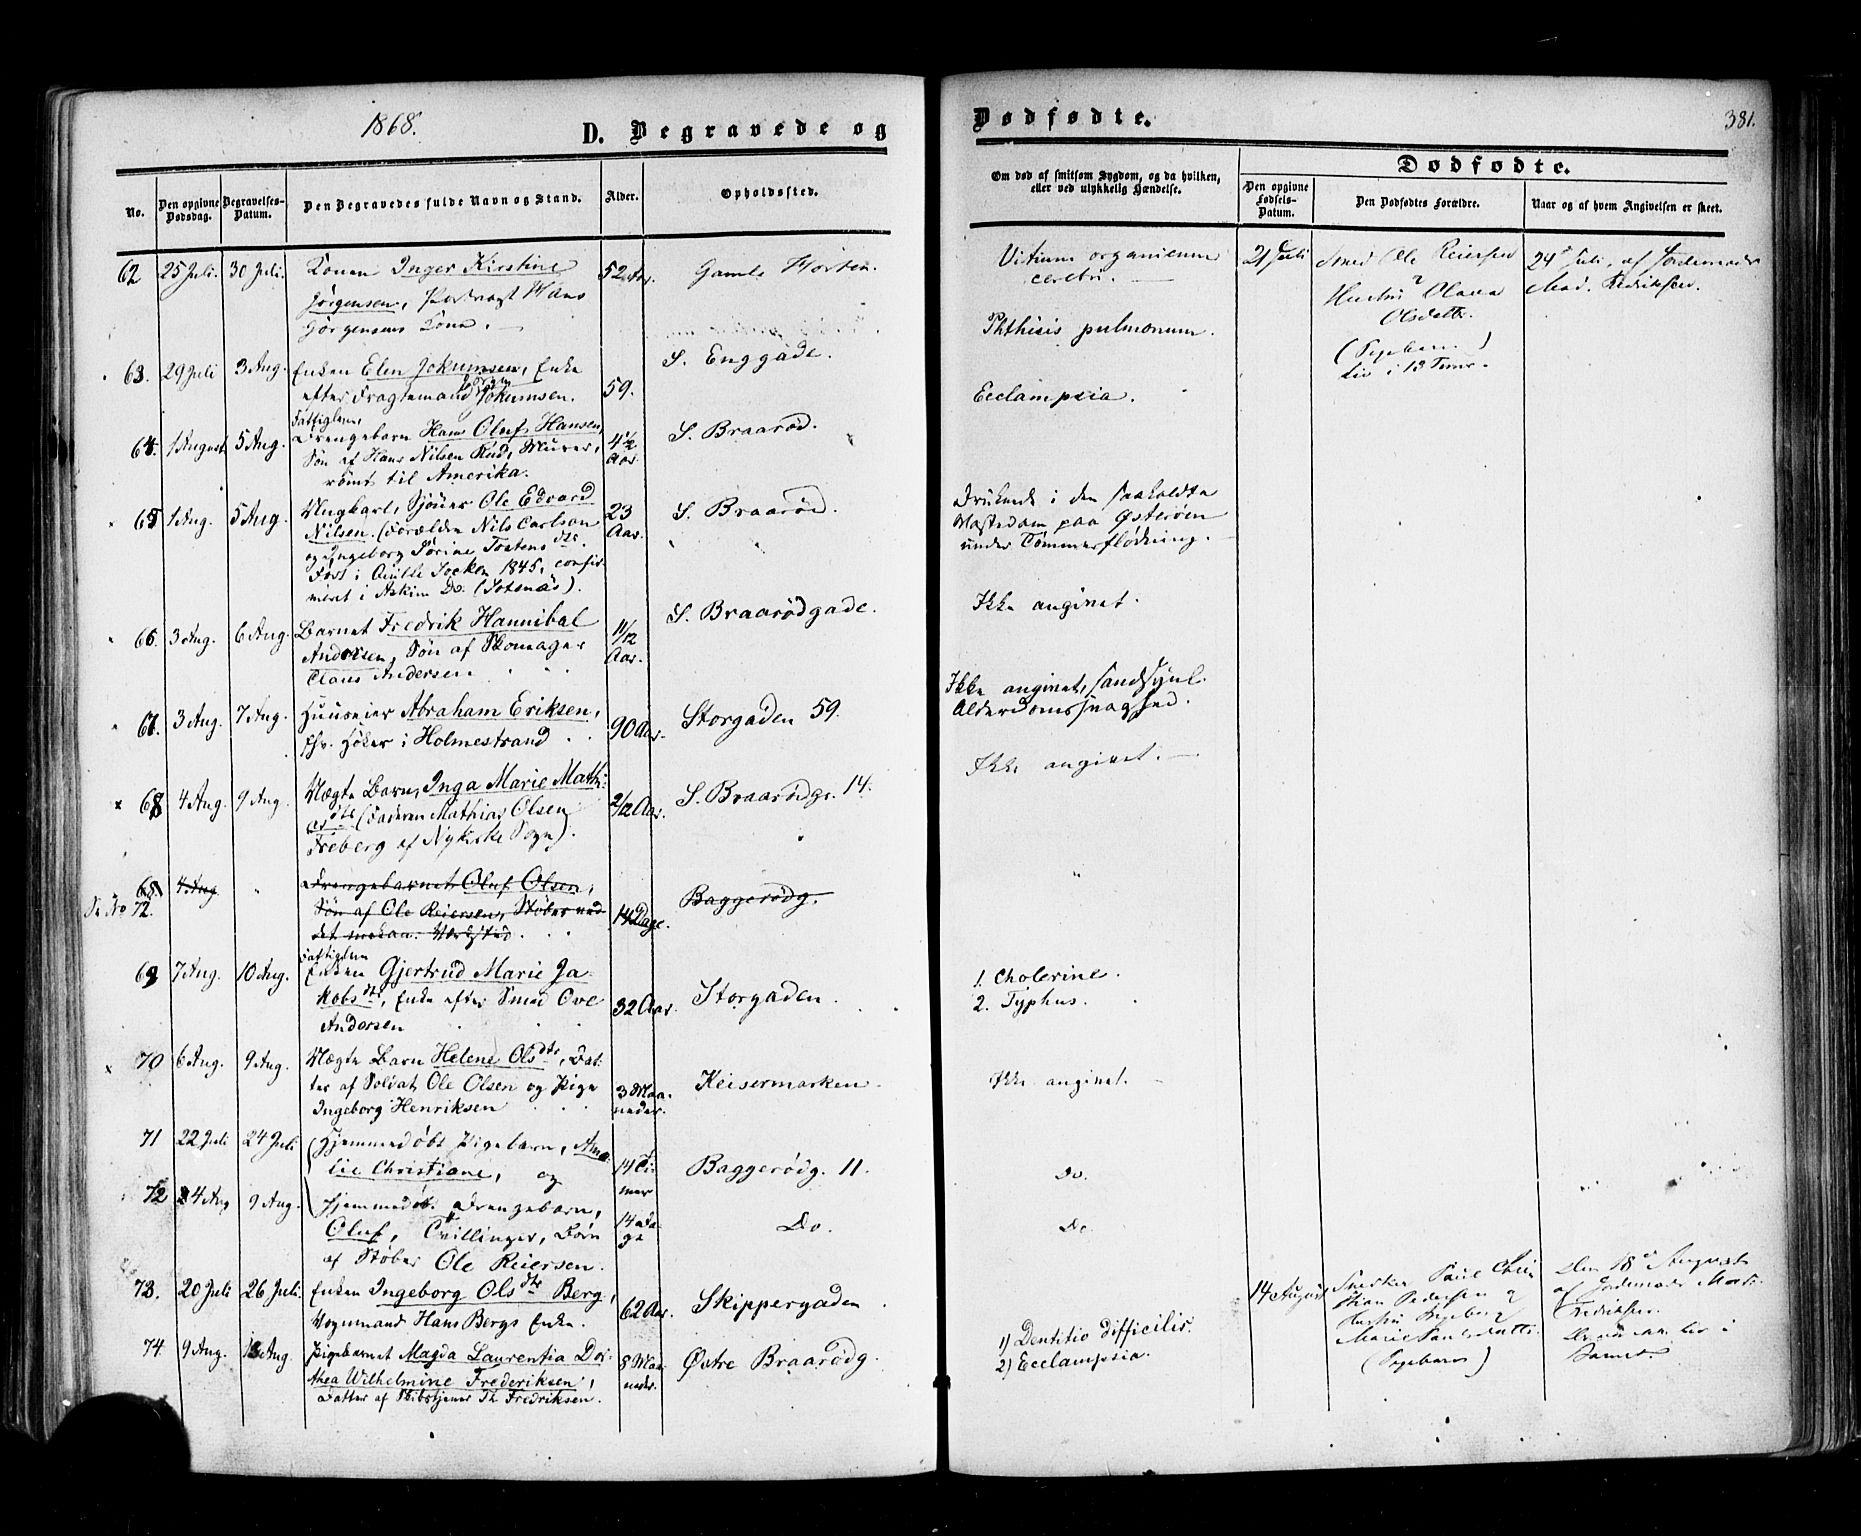 1868.
D. Begravede og
Dødfødte.
381.
No.
Den opgivne Dødsdag.
Begravelses-Datum.
Den Begravedes fulde Navn og Stand.
Alder.
Opholdssted.
Om død af smitsom Sygdom, og da hvilken, eller ved ulykkelig Hændelse.
Dødfødte.
Den opgivne Fødsels-Datum.
Den Dødfødtes Forældre.
Naar og af hvem Angivelsen er skeet.
62 25 Juli. 30 Juli. Konen Inger Kirstine 52 Aar. Gamle Horten.
Jørgensen, Hans
Jørgensens Kone.
Vitium organicum
cerebri.
21 Juli Smed Ole Reiersen
Hustru Olava
Olsdatter.
(Pigebarn)
Liv i 13 Timer.
24de Juli, af Jordemoder
Mad. Fredriksen.
63. 29 Juli 3 Aug. Enken Elen Jokumsen, Enke 59. S. Enggade.
efter Fragtemand Jokumsen.
Phthisis pulmonum.
64. 1 August 5 Aug. Fattiglem,
Drengebarn Hans Oluf Hansen, 4½ Aar. S. Braarød.
Søn af Hans Nilsen Rud, Murer,
rømt til Amerika.
Ecclampsia.
65 1 Aug. 5 Aug. Ungkarl, Sjømr Ole Edvard 23 Aar. S. Braarød.
Nilsen. (Forældre Nils Carlson
og Ingeborg Sørine Tostensdtr.
Født i Socken 1845, confir-
meret i Askim Do. (Sotenäs).
Druknede i den saakaldte
Mastedam paa Østerøen
under Tømmerflødning.
66. 3 Aug. 6 Aug. Barnet Fredrik Hannibal 11/12 Aar. S. Braarødgade.
Andersen, Søn af Skomager
Claus Andersen
Ikke angivet.
67. 3 Aug. 7 Aug. Huuseier Abraham Eriksen, 90 Aar. Storgaden 59.
fhv. Høker i Holmestrand
Ikke angivet, sandsynl.
Alderdomssvaghed.
68 4 Aug. 9 Aug. Uægte Barn, Inga Marie Mathi- 2/12 Aar. S. Braarødg. 14.
asdtr (Faderen Mathias Olsen
Freberg af Nykirke Sogn).
Ikke angivet.
68. 4 Aug Drengebarnet Oluf Olsen, 14 Dage. Baggerødg.
Se No 72.
Søn af Ole Reiersen, Støber ved
det mekan. Værksted
69 7 Aug. 10 Aug. Fattiglem
Enken Gjertrud Marie Ja- 32 Aar. Storgaden.
kobsdtr, Enke efter Smed Ove
Andersen
1. Cholerine.
2. Typhus.
70 6 Aug. 9 Aug. Uægte Barn Helene Olsdtr, Dat- 3 Maa-neder. Keisermarken.
ter af Soldat Ole Olsen og Pige
Ingeborg Henriksen
Ikke angivet.
71 22 Juli 24 Juli (Hjemmedøbt Pigebarn, Ama- 14 Ti-mer Baggerødg. 11.
lie Christiane, og
Do.
72 4 Aug 9 Aug. Hjemmedøb. Drengebarn, 14 Da-ge Do.
Oluf, Tvillinger, Børn
af Støber Ole Reiersen.
Do
73. 20 Juli 26 Juli. Enken Ingeborg Olsdtr Berg, 62 Aar. Skippergaden
Vognmand Hans Bergs Enke.
14 August Snedker Paul Chri-
stian Pedersen og
Hustru Ingeborg
Marie Paulsdatter.
(Pigebarn)
Den 18de August
af Jordemoder Mad.
Fredriksen.
74 9 Aug. 13 Aug. Pigebarnet Magda Laurentia Dor- 8 Maa-neder. Østre Braarødg.
thea Wilhelmine Frederiksen,
Datter af Skibstjener Th Fredriksen.
1) Dentitio difficilis.
2) Ecclampsia.